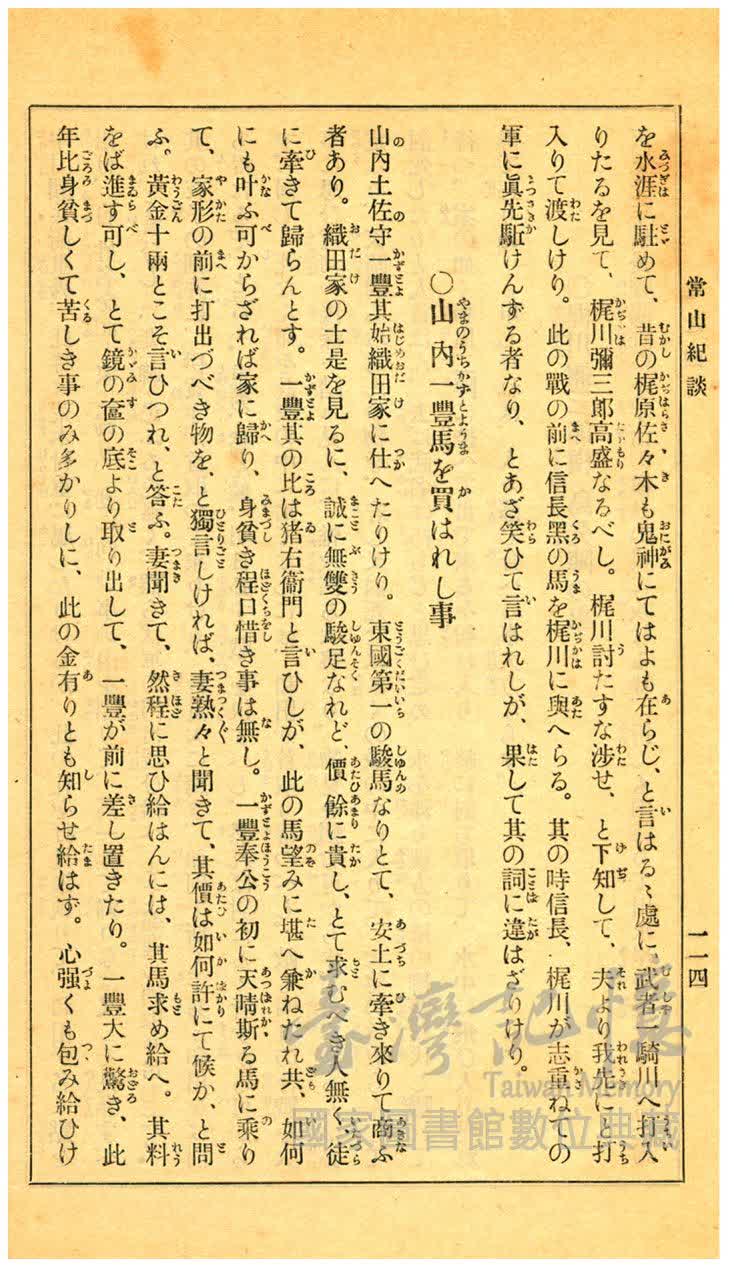 常山紀談
一一四
を水涯に駐めて、昔の梶原佐々木も鬼神にてはよも在らじ、と言はるゝ處に、武者一騎川へ打入
りたるを見て、梶川彌三郎高盛なるべし。梶川討たすな渉せ、と下知して、夫より我先にと打
入りて渡しけり。此の戰の前に信長黑の馬を梶川に與へらる。其の時信長、梶川が志重ねての
軍に眞先駈けんずる者なり、とあざ笑ひて言はれしが、果して其の詞に違はざりけり。
〇山內一豐馬を買はれし事
山內土佐守一豐其始織田家に仕へたりけり。東國第一の駿馬なりとて、安土に牽き來りて商ふ
者あり。織田家の士是を見るに、誠に無雙の駿足なれど、價餘に貴し、とて求むべき人無く、徒
に牽きて歸らんとす。一豐其の比は猪右衞門と言ひしが、此の馬望みに堪へ兼ねたれ共、如何
にも叶ふ可からざれば家に歸り、身貧き程口惜き事は無し。一豐奉公の初に天晴斯る馬に乘り
て、家形の前に打出づべき物を、と獨言しければ、妻熟々と聞きて、其價は如何許にて候か、と問
ふ。黃金十兩とこそ言ひつれ、と答ふ。妻聞きて、然程に思ひ給はんには、其馬求め給へ。其料
をば進す可し、とて鏡の奩の底より取り出して、一豐が前に差し置きたり。一豐大に驚き、此
年比身貧しくて苦しき事のみ多かりしに、此の金有りとも知らせ給はず。心强くも包み給ひけ
臺灣記憶
Taiwan Memory
國家圖書館數位典藏